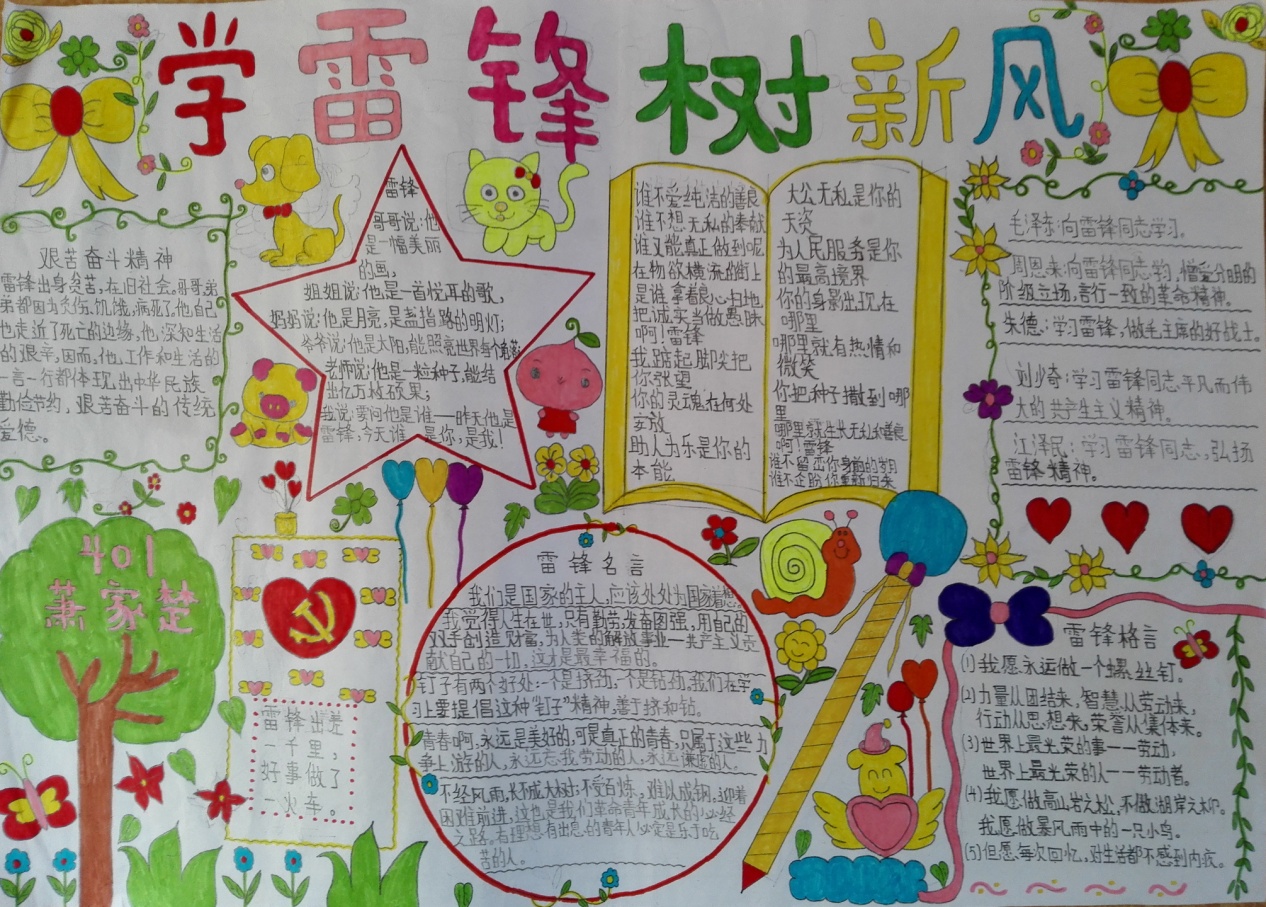 学雷锋树新风
艰苦奋斗精神
雷锋出身贫苦,在旧社会,哥哥弟
弟都因为炙伤、饥饿,病死了,他自己
也走近了死亡的边缘,他深知生活
的艰辛,因而,他工作和生活的
一言一行都体现出中华民族
勤俭节约,艰苦奋斗的传统
爱德。
雷锋
哥哥说:他
是一幅美丽
的画,
姐姐说:他是一首悦耳的歌,
妈妈说:他是月亮,是盏指路的明灯;
爷爷说:他是太阳,能照亮世界每个角落
老师说:他是一粒种子,能结
出亿万棵硕果;
我说:要问他是谁—昨天他是
雷锋,今天谁—是你,是我!
谁不爱纯洁的善良
谁不想无私的奉献
谁又能真正做到呢
在物欲横流的街上
是谁拿着良心扫地
把诚实当做愚昧
啊!雷锋
我踮起脚尖把
你张望
你的灵魂在何处
安放
助人为乐是你的
本能
大公无私是你的
天资
为人民服务是你
的最高境界
你的身影出现在
哪里
哪里就有热情和
微笑
你把种子撒到哪
里
哪里就生长无私和善良
啊!雷锋
谁不留恋你身前的岁月
谁不企盼你重新归来
毛泽东:向雷锋同志学习。
周恩来:向雷锋同志学习,憎爱分明的
阶级立场,言行一致的革命精神。
朱德:学习雷锋,做毛主席的好战士。
刘少奇:学习雷锋同志平凡而伟
大的共产主义精神。
江泽民:学习雷锋同志,弘扬
雷锋精神。
401
萧家楚
雷锋出差
一千里,
好事做了
一火车。
雷锋名言
我们是国家的主人,应该处处为国家着想。
我觉得人生在世,只有勤劳,发奋图强,用自己的
双手创造财富,为人类的解放事业—共产主义贡
献自己的一切,这才是最幸福的。
钉子有两个好处:一个是挤劲,一个是钻劲,我们在学
习上要提倡这种“钉子”精神,善于挤和钻。
青春啊,永远是美好的,可是真正的青春,只属于这些力
争上游的人,永远忘我劳动的人,永远谦虚的人。
不经风雨,长不成大树;不受百炼,难以成钢,迎着
困难前进,这也是我们革命青年成长的必经
之路。有理想有出息的青年人必定是乐于吃
苦的人。
雷锋格言
(1)我愿永远做一个螺丝钉。
(2)力量从团结来,智慧从劳动来,
行动从思想来,荣誉从集体来。
(3)世界上最光荣的事——劳动,
世界上最光荣的人——劳动者。
(4)我愿做高山岩之松,不做湖岸之柳。
我愿做暴风雨中的一只小鸟。
(5)但愿每次回忆,对生活都不感到内疚。